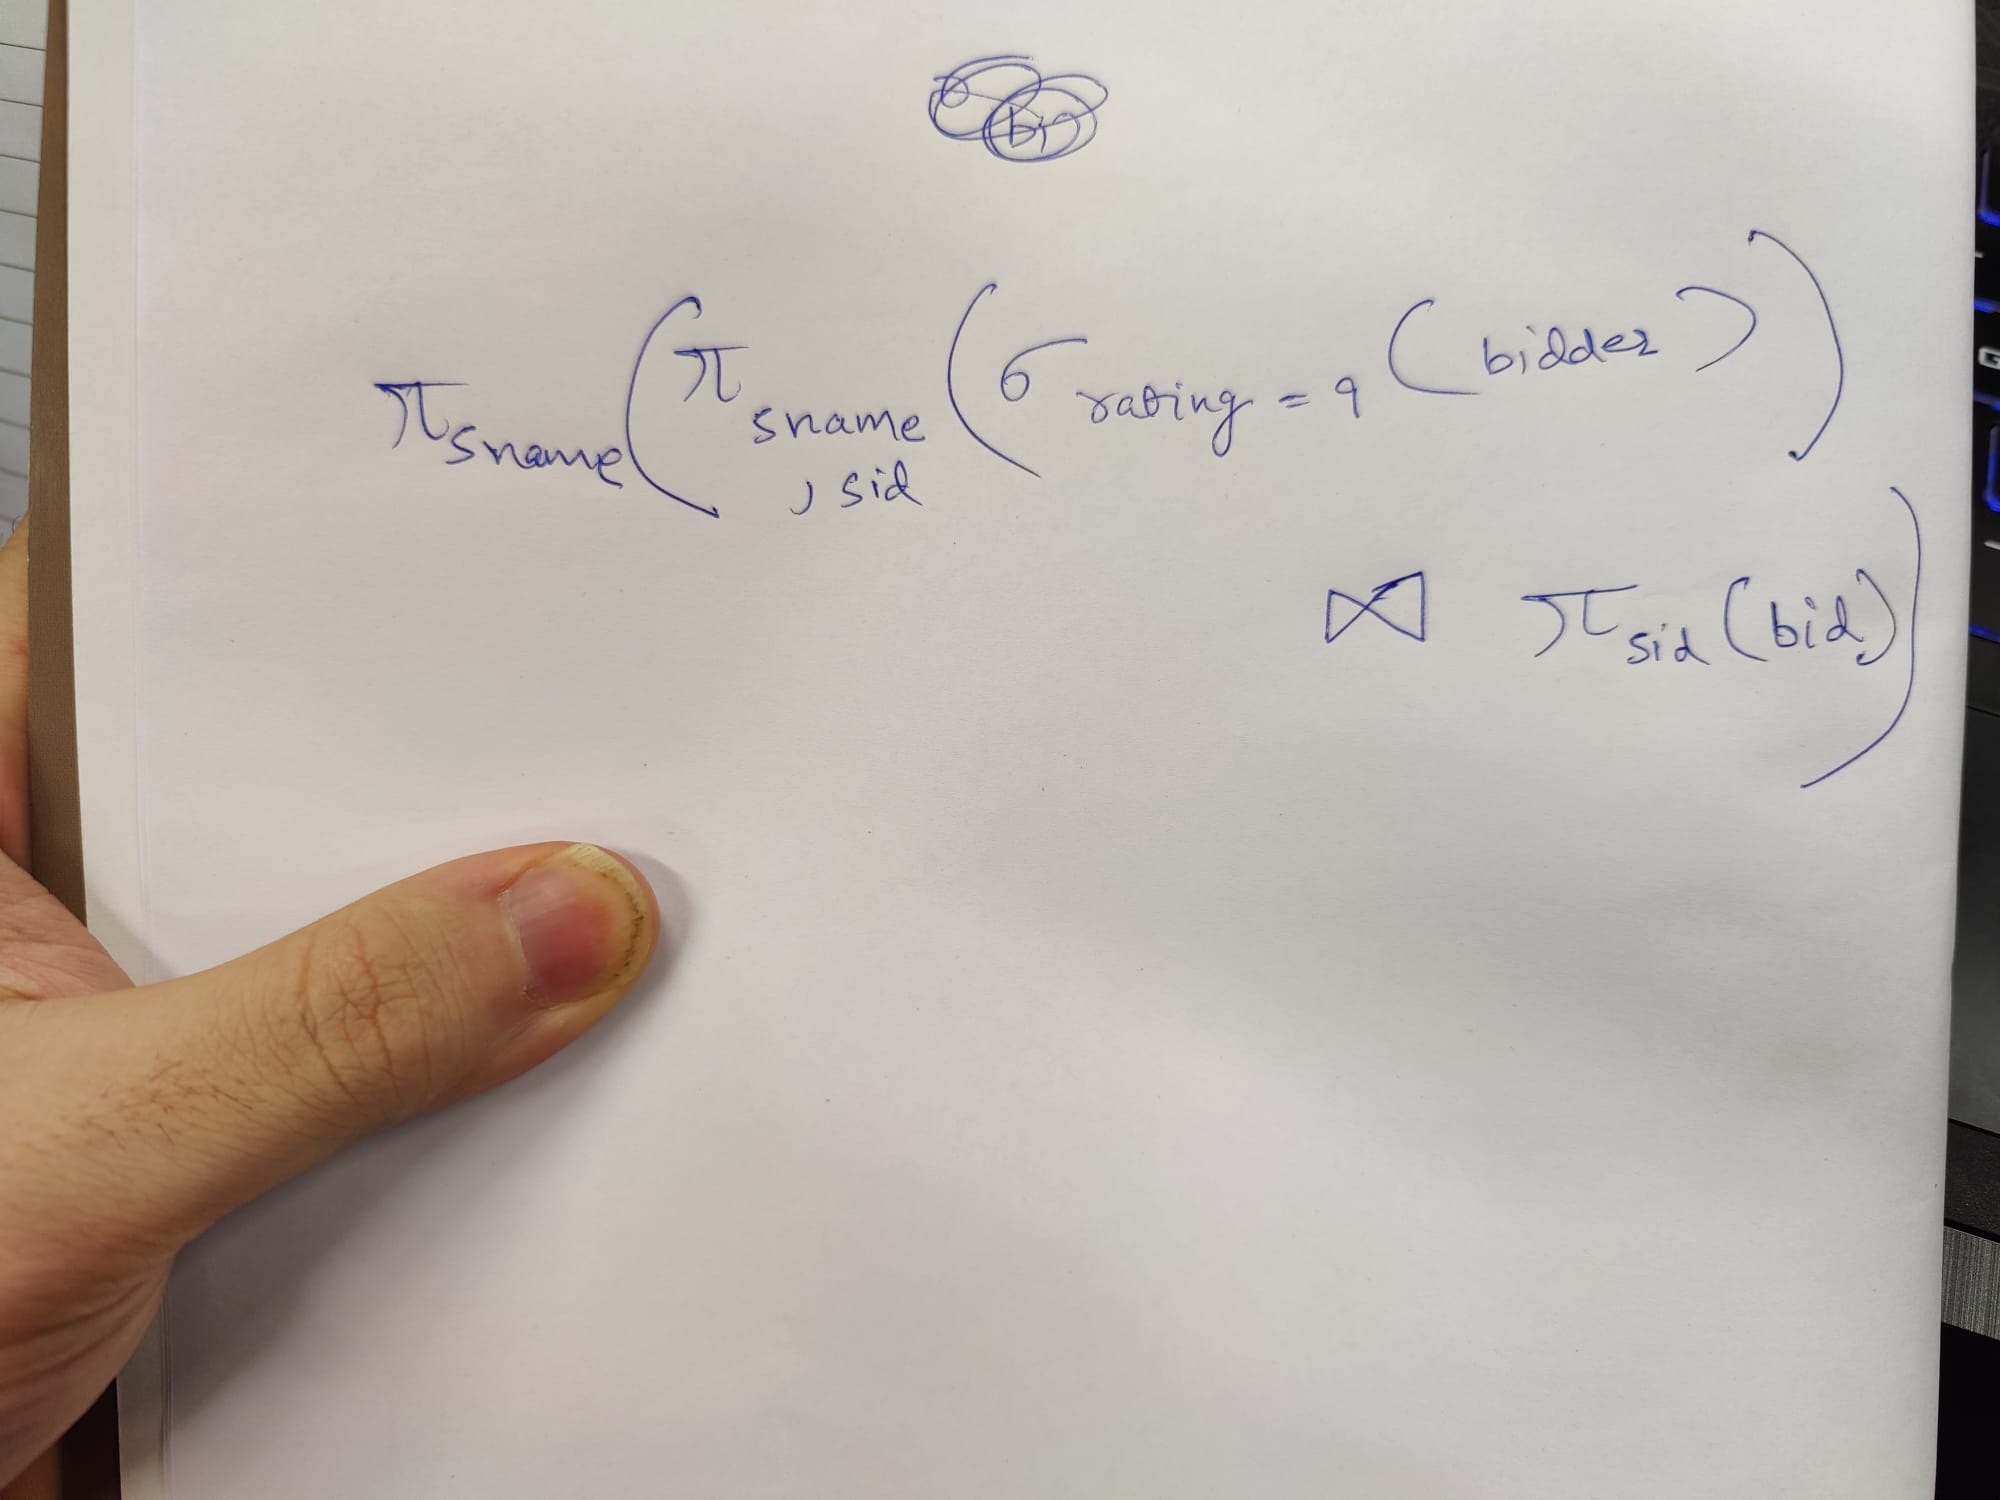 π sname ( π sname , sid ( σ rating = 9 ( bidder ) )
⋈ π sid ( bid ) )